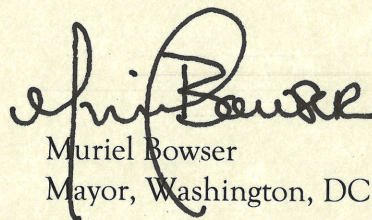 Muriel Bowser
Muriel Bowser
Mayor, Washington, DC